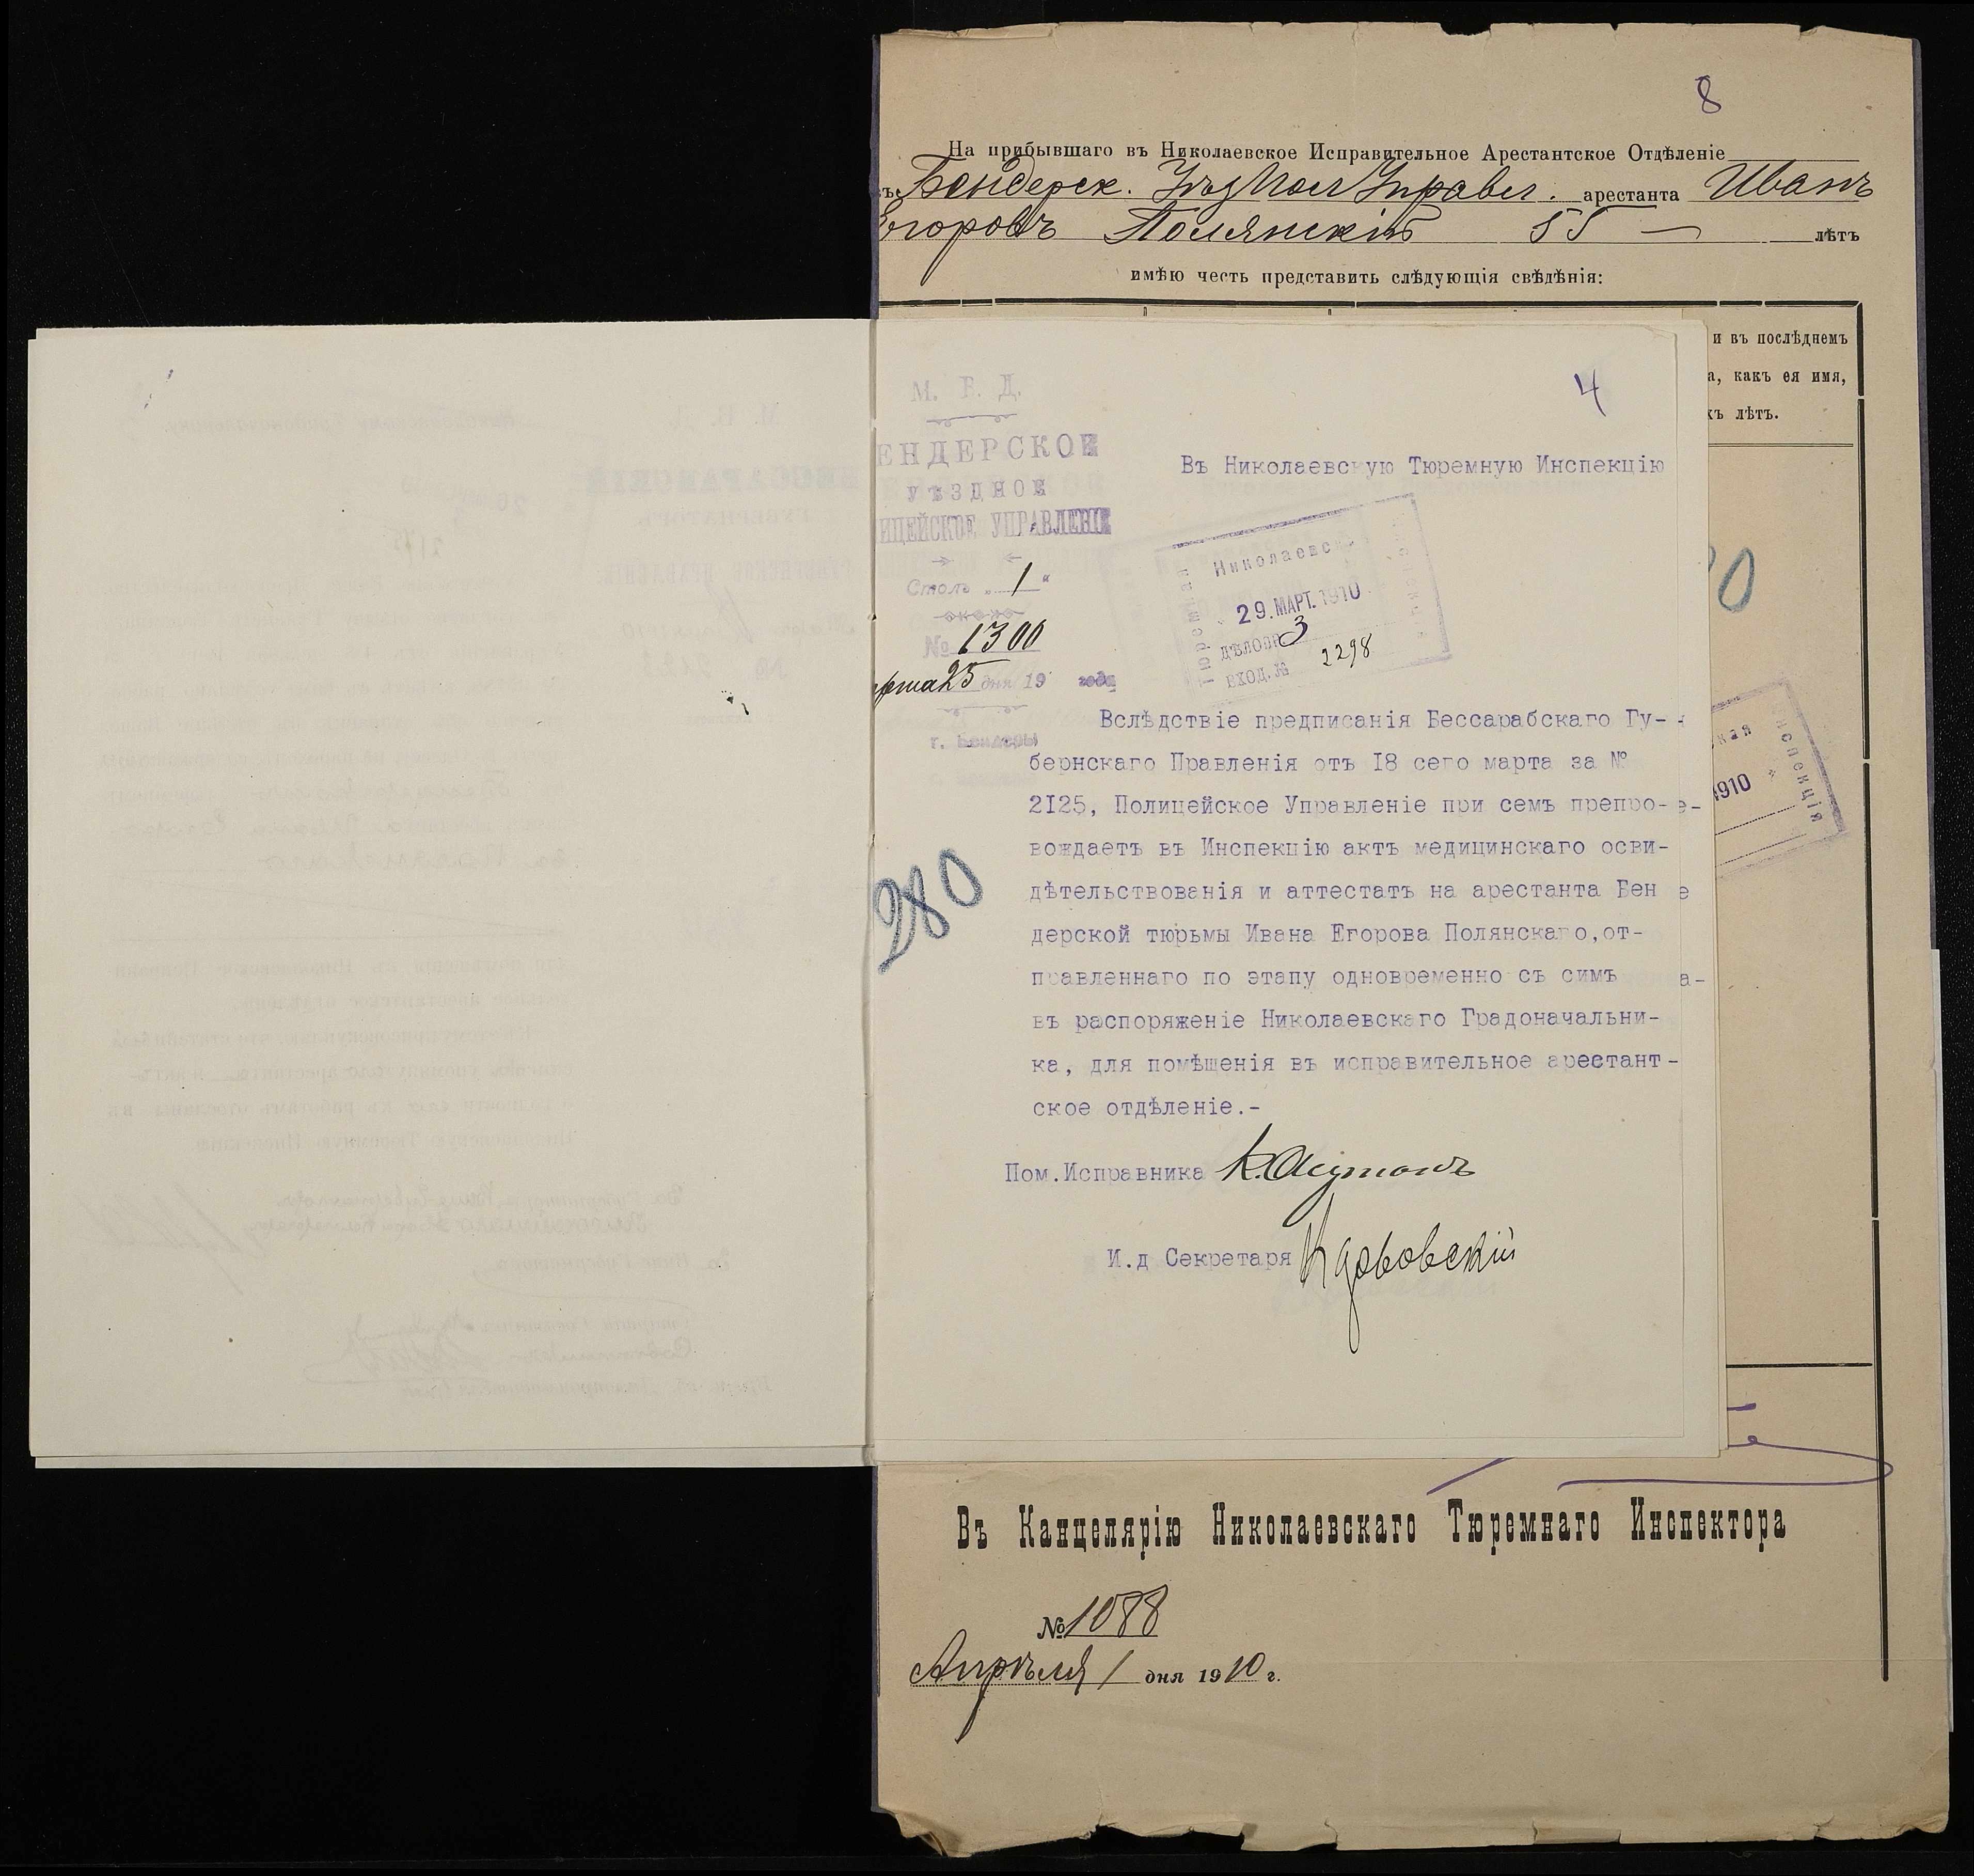 8
На прибывшаго въ Николаевское Исправительное Арестантское Отдѣленіе
Бендерск. Уѣзд Пол Управл. арестанта Иванъ
Егоровъ Полянскій 55 — лѣтъ
имѣю честь представить слѣдующія свѣдѣнія:
и въ послѣднемъ
а, какъ ея имя,
хъ лѣтъ.
4
М. В. Д.
ЕНДЕРСКОЕ
УѢЗДНОЕ
ИЦЕЙСКОЕ УПРАВЛЕНІЕ
Столъ „ 1 “
№ 1300
арта 25 дня 19 года
г. Бендеры
Въ Николаевскую Тюремную Инспекцію
Николаевск
29. МАРТ. 1910
ДѢЛОПР. 3
ВХОД. № 2298
Вслѣдствіе предписанія Бессарабскаго Гу-
бернскаго Правленія отъ I8 сего марта за №
2I25, Полицейское Управленіе при семъ препро-
вождаетъ въ Инспекцію актъ медицинскаго осви-
дѣтельствованія и аттестатъ на арестанта Бен
дерской тюрьмы Ивана Егорова Полянскаго,от-
правленнаго по этапу одновременно съ симъ
въ распоряженіе Николаевскаго Градоначальни-
ка, для помѣщенія въ исправительное арестант-
ское отдѣленіе.-
280
Пом.Исправника
И.д Секретаря
0
кая
1910
Инспекція
Въ Канцелярію Николаевскаго Тюремнаго Инспектора
№ 1088
Апрѣля 1 дня 1910 г.